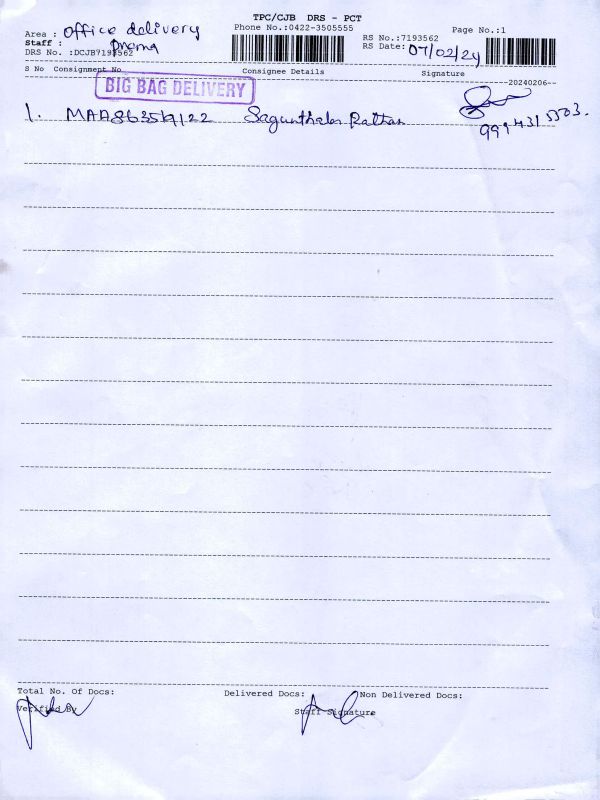 TPC/CJB DRS - PCT
Area : Office delivery
Phone No.:0422-3505555
Page No.:1
Staff :
RS No.:7193562
DRS No. :DCJB7193562
RS Date: 07/02/24
S No Consignment No Consignee Details Signature
--20240206--
BIG BAG DELIVERY
1. Sagunthala
Total No. Of Docs: Delivered Docs: Non Delivered Docs:
Verified By Staff Signature